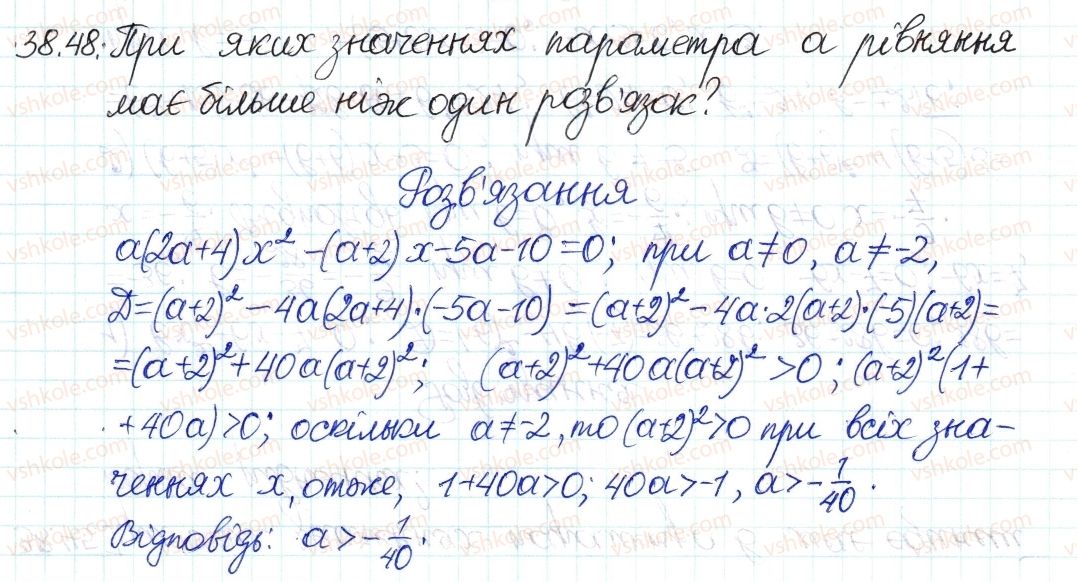 38.48. При яких значеннях параметра а рівняння
має більше ніж один розв'язок?
Розв'язання
a(2a+4)x² -(a+2)x-5a-10=0; при a≠0, a≠-2,
D=(a+2)²-4a(2a+4)·(-5a-10)=(a+2)²-4a·2(a+2)·(-5)(a+2)=
=(a+2)²+40a(a+2)²; (a+2)²+40a(a+2)²>0; (a+2)²(1+
+40a)>0; оскільки a≠-2, то (a+2)²>0 при всіх зна-
ченнях x, отже, 1+40a>0; 40a>-1, a>-1/40.
Відповідь: a>-1/40.